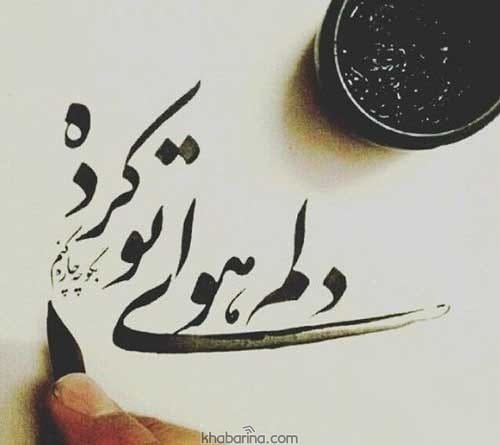 دلم هوای تو کرده
بگو چه چاره کنم
khabarina.com